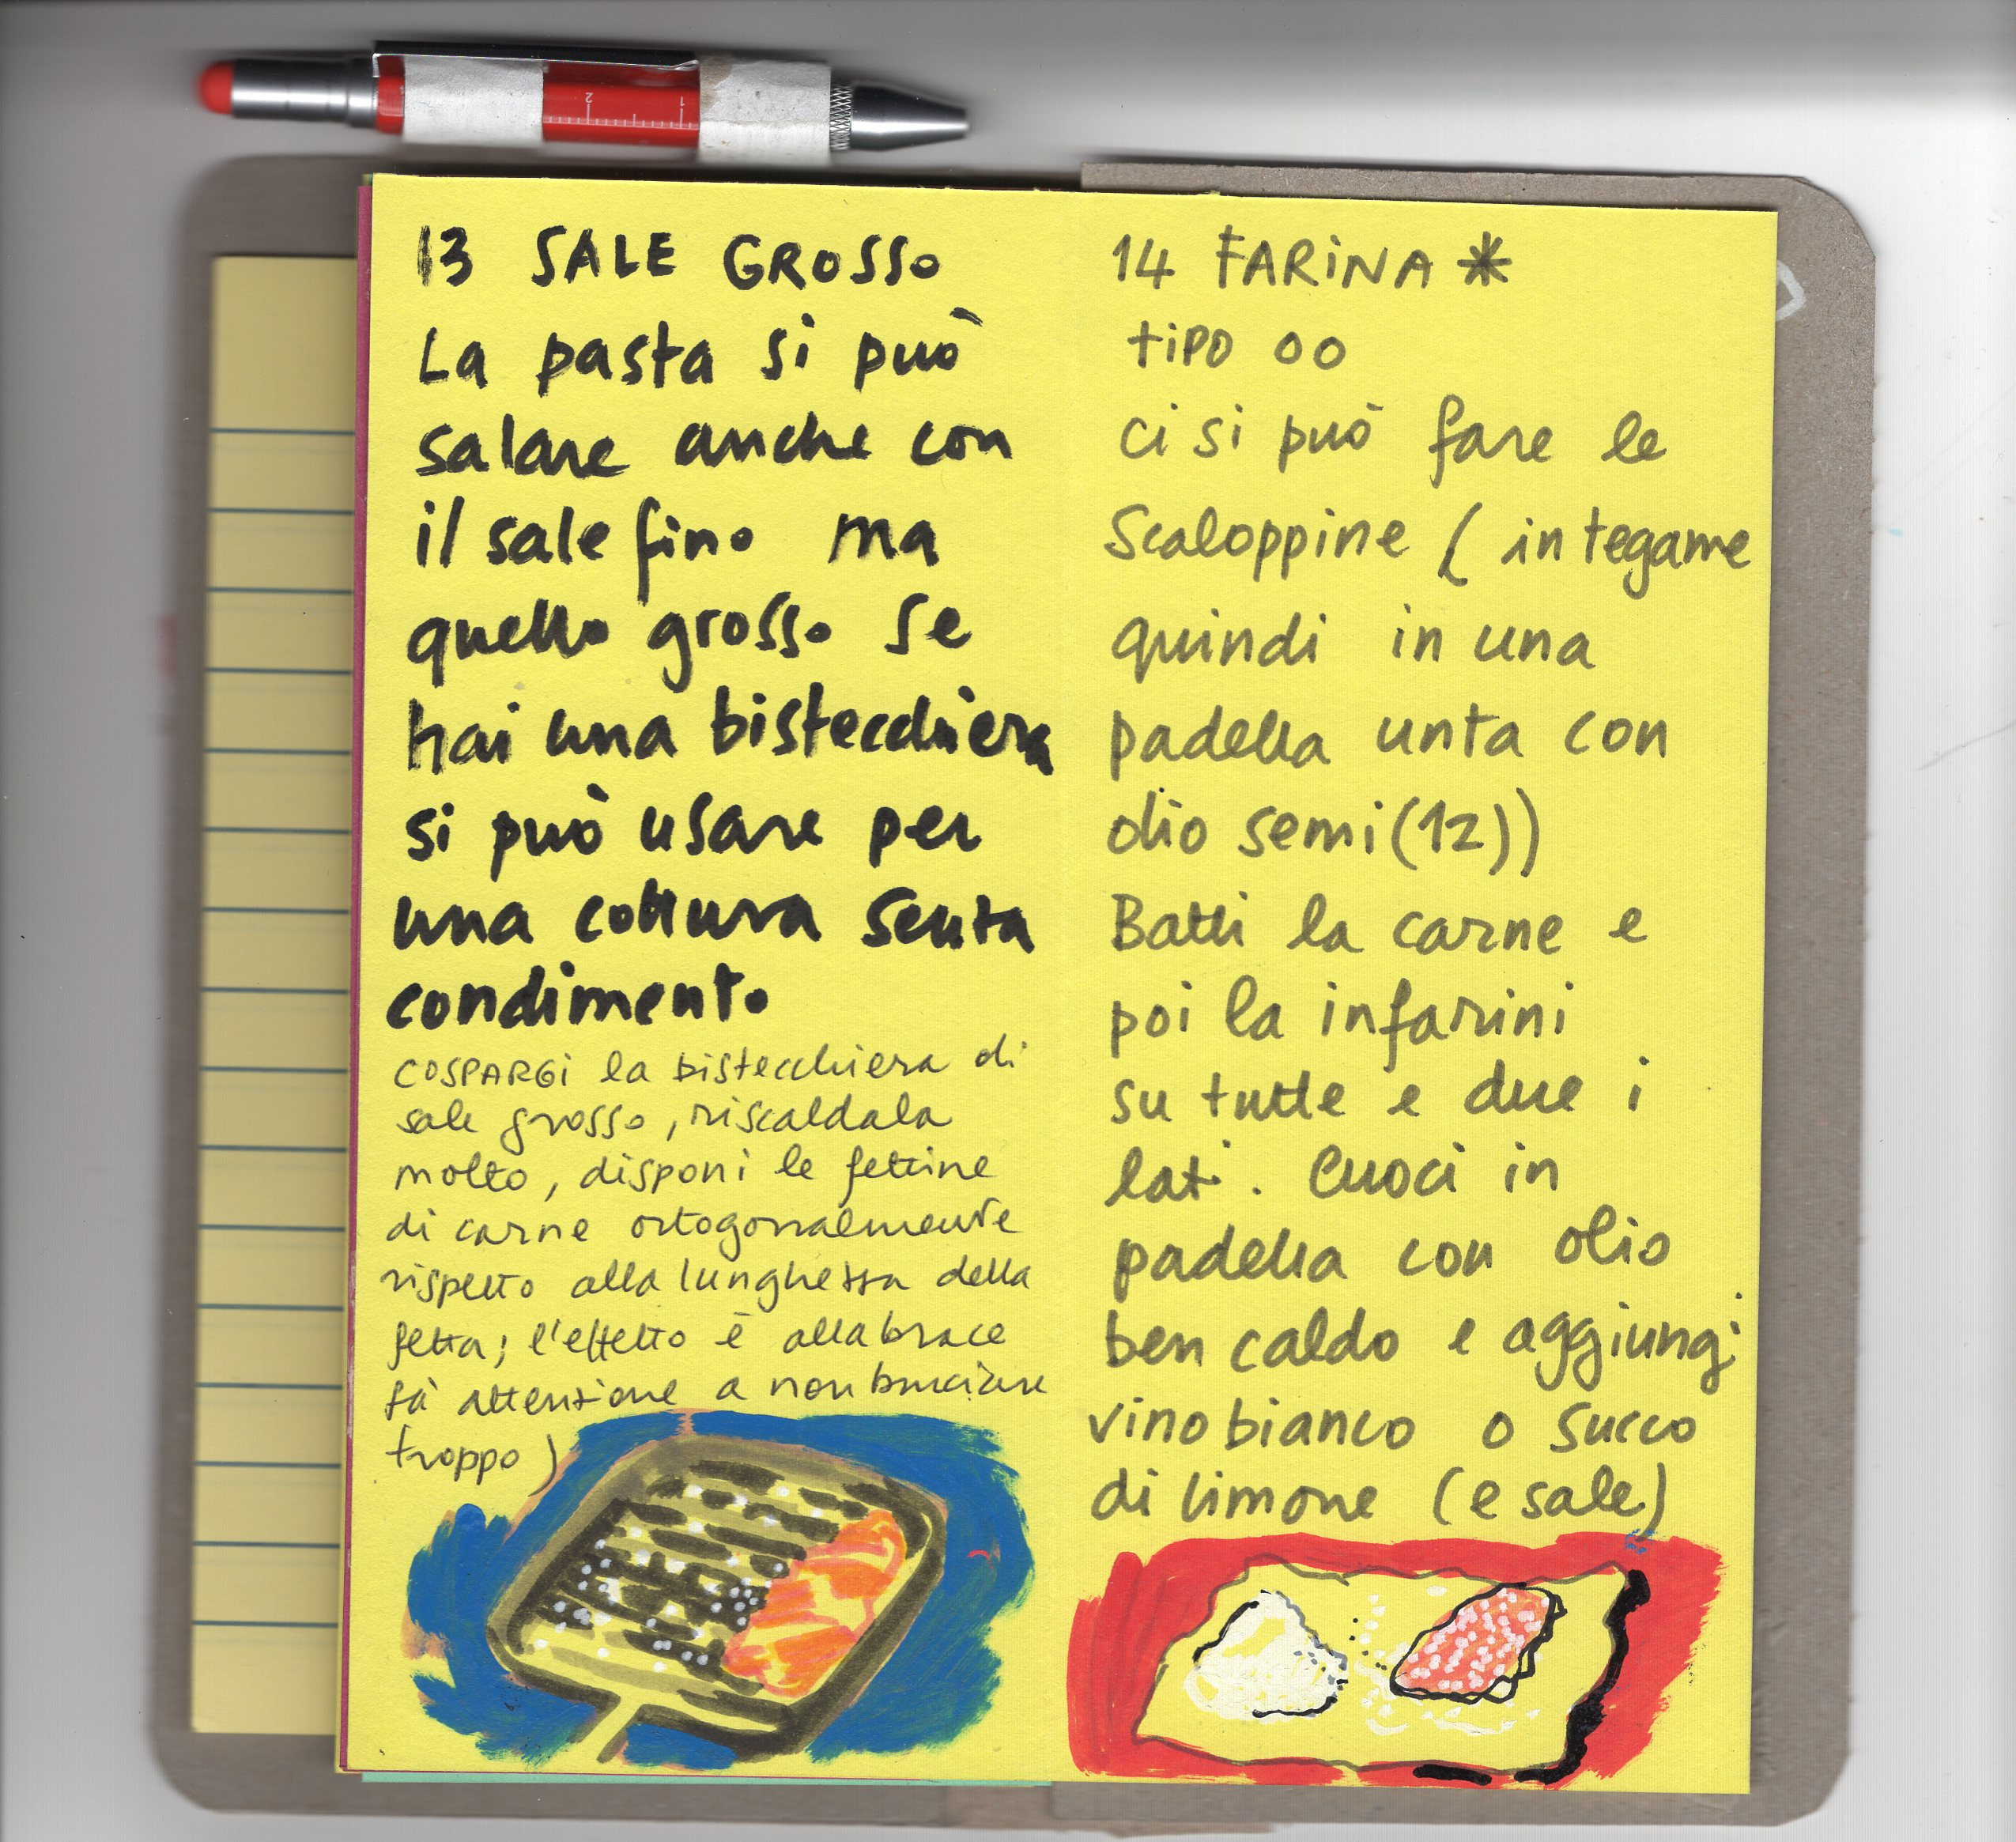 2 1
13 SALE GROSSO
La pasta si può
salare anche con
il sale fino ma
quello grosso se
hai una bistecchiera
si può usare per
una cottura senza
condimento
COSPARGi la bistecchiera di
sale grosso, riscaldala
molto, disponi le fettine
di carne ortogonalmente
rispetto alla lunghezza della
fetta; l'effetto è alla brace
fà attenzione a non bruciare
troppo)
14 FARiNA *
tiPO 00
ci si può fare le
Scaloppine (in tegame
quindi in una
padella unta con
olio semi (12))
Batti la carne e
poi la infarini
su tutte e due i
lati. Cuoci in
padella con olio
ben caldo e aggiungi
vino bianco o succo
di limone (e sale)